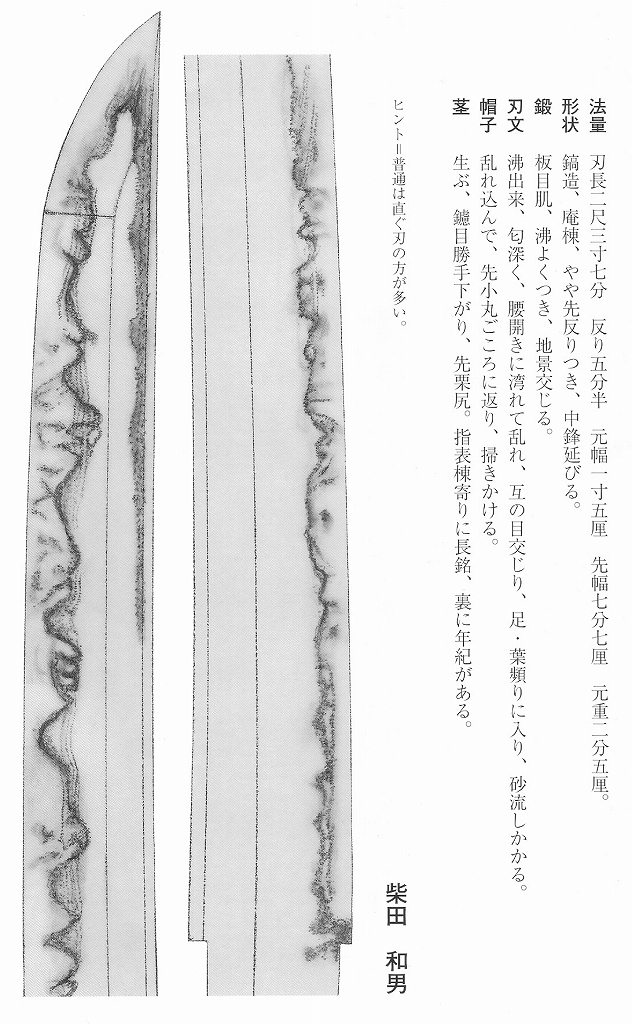 法量　刃長二尺三寸七分　反り五分半　元幅一寸五厘　先幅七分七厘　元重二分五厘。
形状　鎬造、庵棟、やや先反りつき、中鋒延びる。
鍛　板目肌、沸よくつき、地景交じる。
刃文　沸出来、匂深く、腰開きに湾れて乱れ、互の目交じり、足・葉頻りに入り、砂流しかかる。
帽子　乱れ込んで、先小丸ごころに返り、掃きかける。
茎　生ぶ、鑢目勝手下がり、先栗尻。指表棟寄りに長銘、裏に年紀がある。
ヒント＝普通は直ぐ刃の方が多い。
柴田　和男